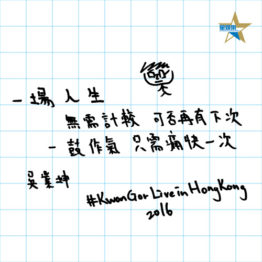 一場人生
無需計較 可否再有下次
一鼓作氣 只需痛快一次
吳業坤
#KwonGorLiveinHongKong
2016